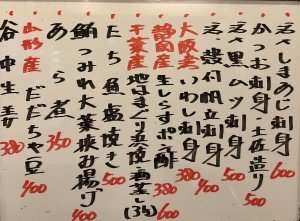 えさしまあじ刺身 600
かつお刺身・土佐造り 500
え 黒ムツ刺身 500
え 殻付帆立刺身 400
大阪産 いわし刺身 380
静岡産 生しらすポン酢 380
千葉産 地はまぐり(浜焼・酒蒸し)(3ヶ) 600
たち魚塩焼き 500
鯵つみれ大葉挟み揚げ 400
あら煮 350
山形産 だだちゃ豆 400
谷中生姜 380